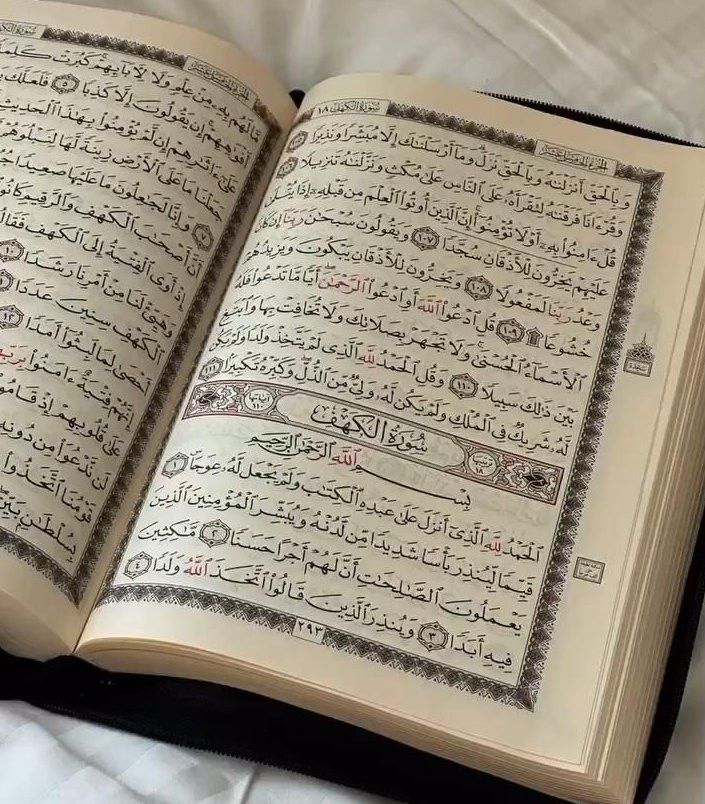 سُورَةُ الكَهْفِ ١٨
الجزء الخامس عشر
وَبِٱلْحَقِّ أَنزَلْنَٰهُ وَبِٱلْحَقِّ نَزَلَ ۗ وَمَآ أَرْسَلْنَٰكَ إِلَّا مُبَشِّرًا وَنَذِيرًا ١٠٥
وَقُرْءَانًا فَرَقْنَٰهُ لِتَقْرَأَهُۥ عَلَى ٱلنَّاسِ عَلَىٰ مُكْثٍ وَنَزَّلْنَٰهُ تَنزِيلًا ١٠٦
قُلْ ءَامِنُوا۟ بِهِۦٓ أَوْ لَا تُؤْمِنُوٓا۟ ۚ إِنَّ ٱلَّذِينَ أُوتُوا۟ ٱلْعِلْمَ مِن قَبْلِهِۦٓ إِذَا يُتْلَىٰ
عَلَيْهِمْ يَخِرُّونَ لِلْأَذْقَانِ سُجَّدًا ١٠٧ وَيَقُولُونَ سُبْحَٰنَ رَبِّنَآ إِن كَانَ
وَعْدُ رَبِّنَا لَمَفْعُولًا ١٠٨ وَيَخِرُّونَ لِلْأَذْقَانِ يَبْكُونَ وَيَزِيدُهُمْ
خُشُوعًا ۩ ١٠٩ قُلِ ٱدْعُوا۟ ٱللَّهَ أَوِ ٱدْعُوا۟ ٱلرَّحْمَٰنَ ۖ أَيًّا مَّا تَدْعُوا۟ فَلَهُ
ٱلْأَسْمَآءُ ٱلْحُسْنَىٰ ۚ وَلَا تَجْهَرْ بِصَلَاتِكَ وَلَا تُخَافِتْ بِهَا وَٱبْتَغِ
بَيْنَ ذَٰلِكَ سَبِيلًا ١١٠ وَقُلِ ٱلْحَمْدُ لِلَّهِ ٱلَّذِى لَمْ يَتَّخِذْ وَلَدًا وَلَمْ يَكُن
لَّهُۥ شَرِيكٌ فِى ٱلْمُلْكِ وَلَمْ يَكُن لَّهُۥ وَلِىٌّ مِّنَ ٱلذُّلِّ ۖ وَكَبِّرْهُ تَكْبِيرًۢا ١١١
سُورَةُ الكَهْفِ
بِسْمِ ٱللَّهِ ٱلرَّحْمَٰنِ ٱلرَّحِيمِ
ٱلْحَمْدُ لِلَّهِ ٱلَّذِىٓ أَنزَلَ عَلَىٰ عَبْدِهِ ٱلْكِتَٰبَ وَلَمْ يَجْعَل لَّهُۥ عِوَجَا ۜ ١
قَيِّمًا لِّيُنذِرَ بَأْسًا شَدِيدًا مِّن لَّدُنْهُ وَيُبَشِّرَ ٱلْمُؤْمِنِينَ ٱلَّذِينَ
يَعْمَلُونَ ٱلصَّٰلِحَٰتِ أَنَّ لَهُمْ أَجْرًا حَسَنًا ٢ مَّٰكِثِينَ
فِيهِ أَبَدًا ٣ وَيُنذِرَ ٱلَّذِينَ قَالُوا۟ ٱتَّخَذَ ٱللَّهُ وَلَدًا ٤
٢٩٣
الجزء الخامس عشر
مَّا لَهُم بِهِۦ مِنْ عِلْمٍ وَلَا لِءَابَآئِهِمْ ۚ كَبُرَتْ كَلِمَةً
أَفْوَٰهِهِمْ ۚ إِن يَقُولُونَ إِلَّا كَذِبًا ٥ فَلَعَلَّكَ
عَلَىٰٓ ءَاثَٰرِهِمْ إِن لَّمْ يُؤْمِنُوا۟ بِهَٰذَا ٱلْحَدِيثِ
جَعَلْنَا مَا عَلَى ٱلْأَرْضِ زِينَةً لَّهَا لِنَبْلُوَهُمْ
٧ وَإِنَّا لَجَٰعِلُونَ مَا عَلَيْهَا صَعِيدًا
أَنَّ أَصْحَٰبَ ٱلْكَهْفِ وَٱلرَّقِيمِ كَانُوا۟
إِذْ أَوَى ٱلْفِتْيَةُ إِلَى ٱلْكَهْفِ فَقَالُوا۟
وَهَيِّئْ لَنَا مِنْ أَمْرِنَا رَشَدًا
ٱلْكَهْفِ سِنِينَ عَدَدًا
أَحْصَىٰ لِمَا لَبِثُوٓا۟ أَمَدًا ١٢
إِنَّهُمْ فِتْيَةٌ ءَامَنُوا۟
عَلَىٰ قُلُوبِهِمْ إِذْ قَامُوا۟
لَن نَّدْعُوَا۟ مِن دُونِهِ
قَوْمُنَا ٱتَّخَذُوا۟
بِسُلْطَٰنٍۭ بَيِّنٍ